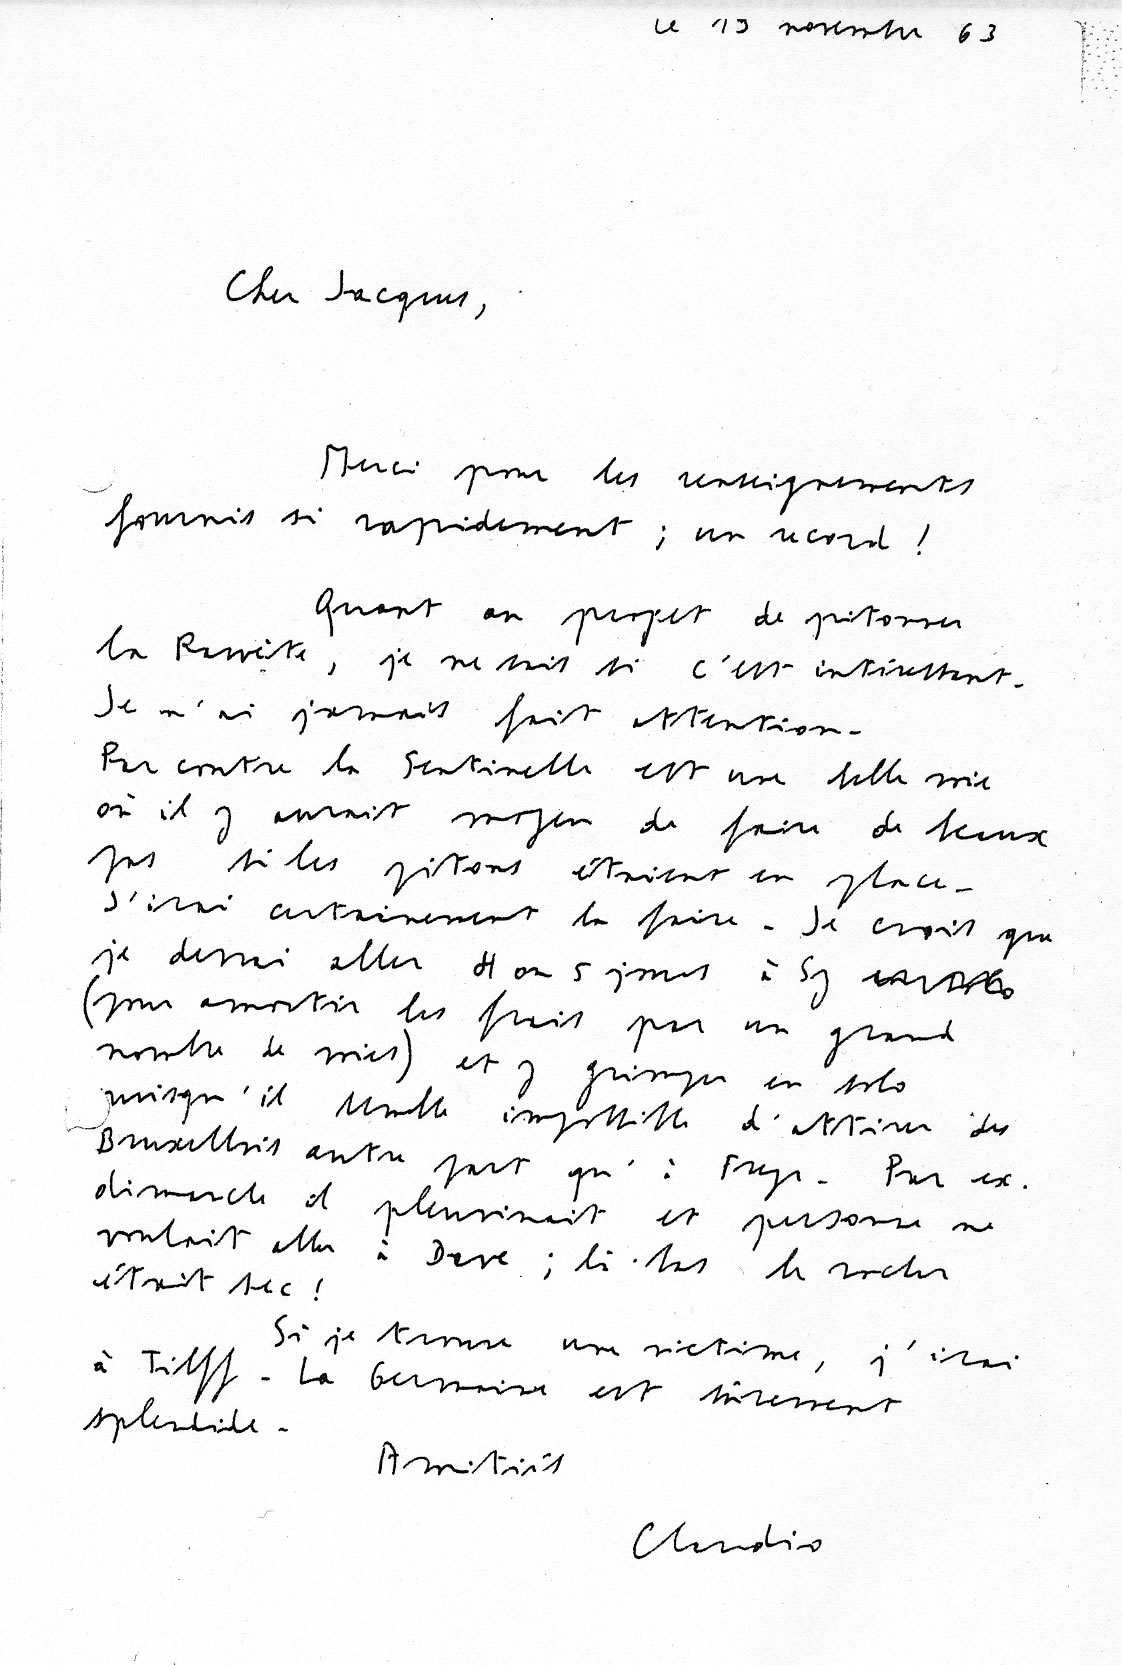 le 19 novembre 63
Cher Jacques,
Merci pour les renseignements
fournis si rapidement ; un record !
Quant au projet de pitonner
la , je ne sais si c'est intéressant.
Je n'ai jamais fait attention.
Par contre la Sentinelle est une belle voie
où il y aurait moyen de faire de beaux
pas si les pitons étaient en place.
J'irai certainement la faire. Je crois que
je devrai aller 4 ou 5 jours à Sy
(pour amortir les frais par un grand
nombre de voies) et y grimper en solo
puisqu'il semble impossible d'attirer des
Bruxellois autre part qu'à Freyr. Par ex.
dimanche il pleuvinait et personne ne
voulait aller à Dave ; là-bas le rocher
était sec !
Si je trouve une victime, j'irai
à Tilff. La Germaine est sûrement
splendide.
Amitiés
Claudio